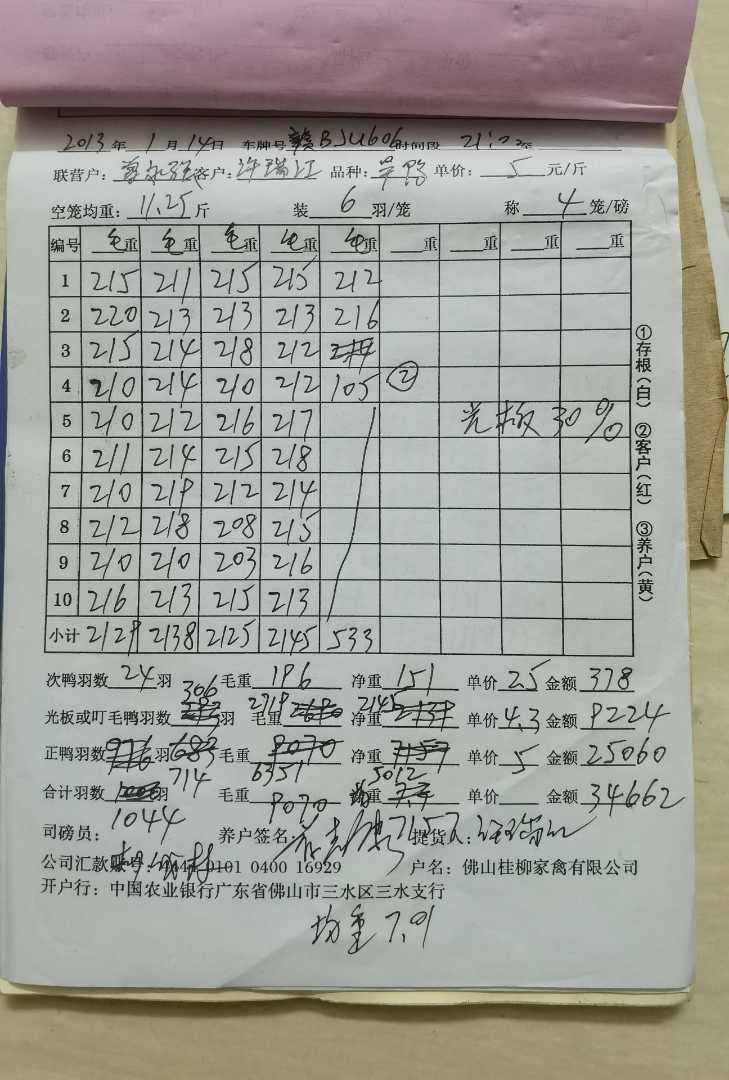 2013年 1月 14日 车牌号 赣BJU606 时间段
联营户: 客户: 许瑞江 品种: 单价: 5 元/斤
空笼均重: 11.25 斤 装 6 羽/笼 称 4 笼/磅
编号 毛重 毛重 毛重 毛重 毛重 重 重 重 重
1 215 211 215 215 212
2 220 213 213 213 216
3 215 214 218 212
4 210 214 210 212 105 ②
5 210 212 216 217 光板30%
6 211 214 215 218
7 210 219 212 214
8 212 218 208 215
9 210 210 203 216
10 216 213 215 213
小计 2129 2138 2125 2145 533
①存根(白) ②客户(红) ③养户(黄)
次鸭羽数 24 羽 毛重 196 净重 151 单价 2.5 金额 378
光板或叮毛鸭羽数 306 羽 毛重 2719 净重 2145 单价 4.3 金额 9224
正鸭羽数 714 羽 毛重 6351 净重 5012 单价 5 金额 25060
合计羽数 1044 羽 毛重 9070 净重 单价 金额 34662
司磅员: 养户签名: 提货人:
公司汇款账号: 0101 0400 16929 户名: 佛山桂柳家禽有限公司
开户行: 中国农业银行广东省佛山市三水区三水支行
均重 7.01